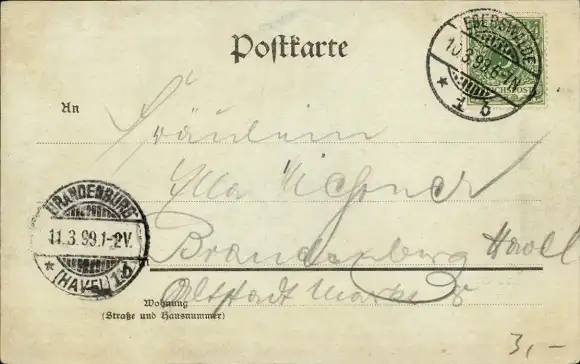 Postkarte
EBERSWALDE
10.3.99.6-7N.
* 1 b
REICHSPOST
An
Fräulein
Ella
Brandenburg Havel
Altstadt Markt 8
BRANDENBURG
11.3.99.1-2V.
* (HAVEL) 1b
Wohnung
(Straße und Hausnummer)
3,-